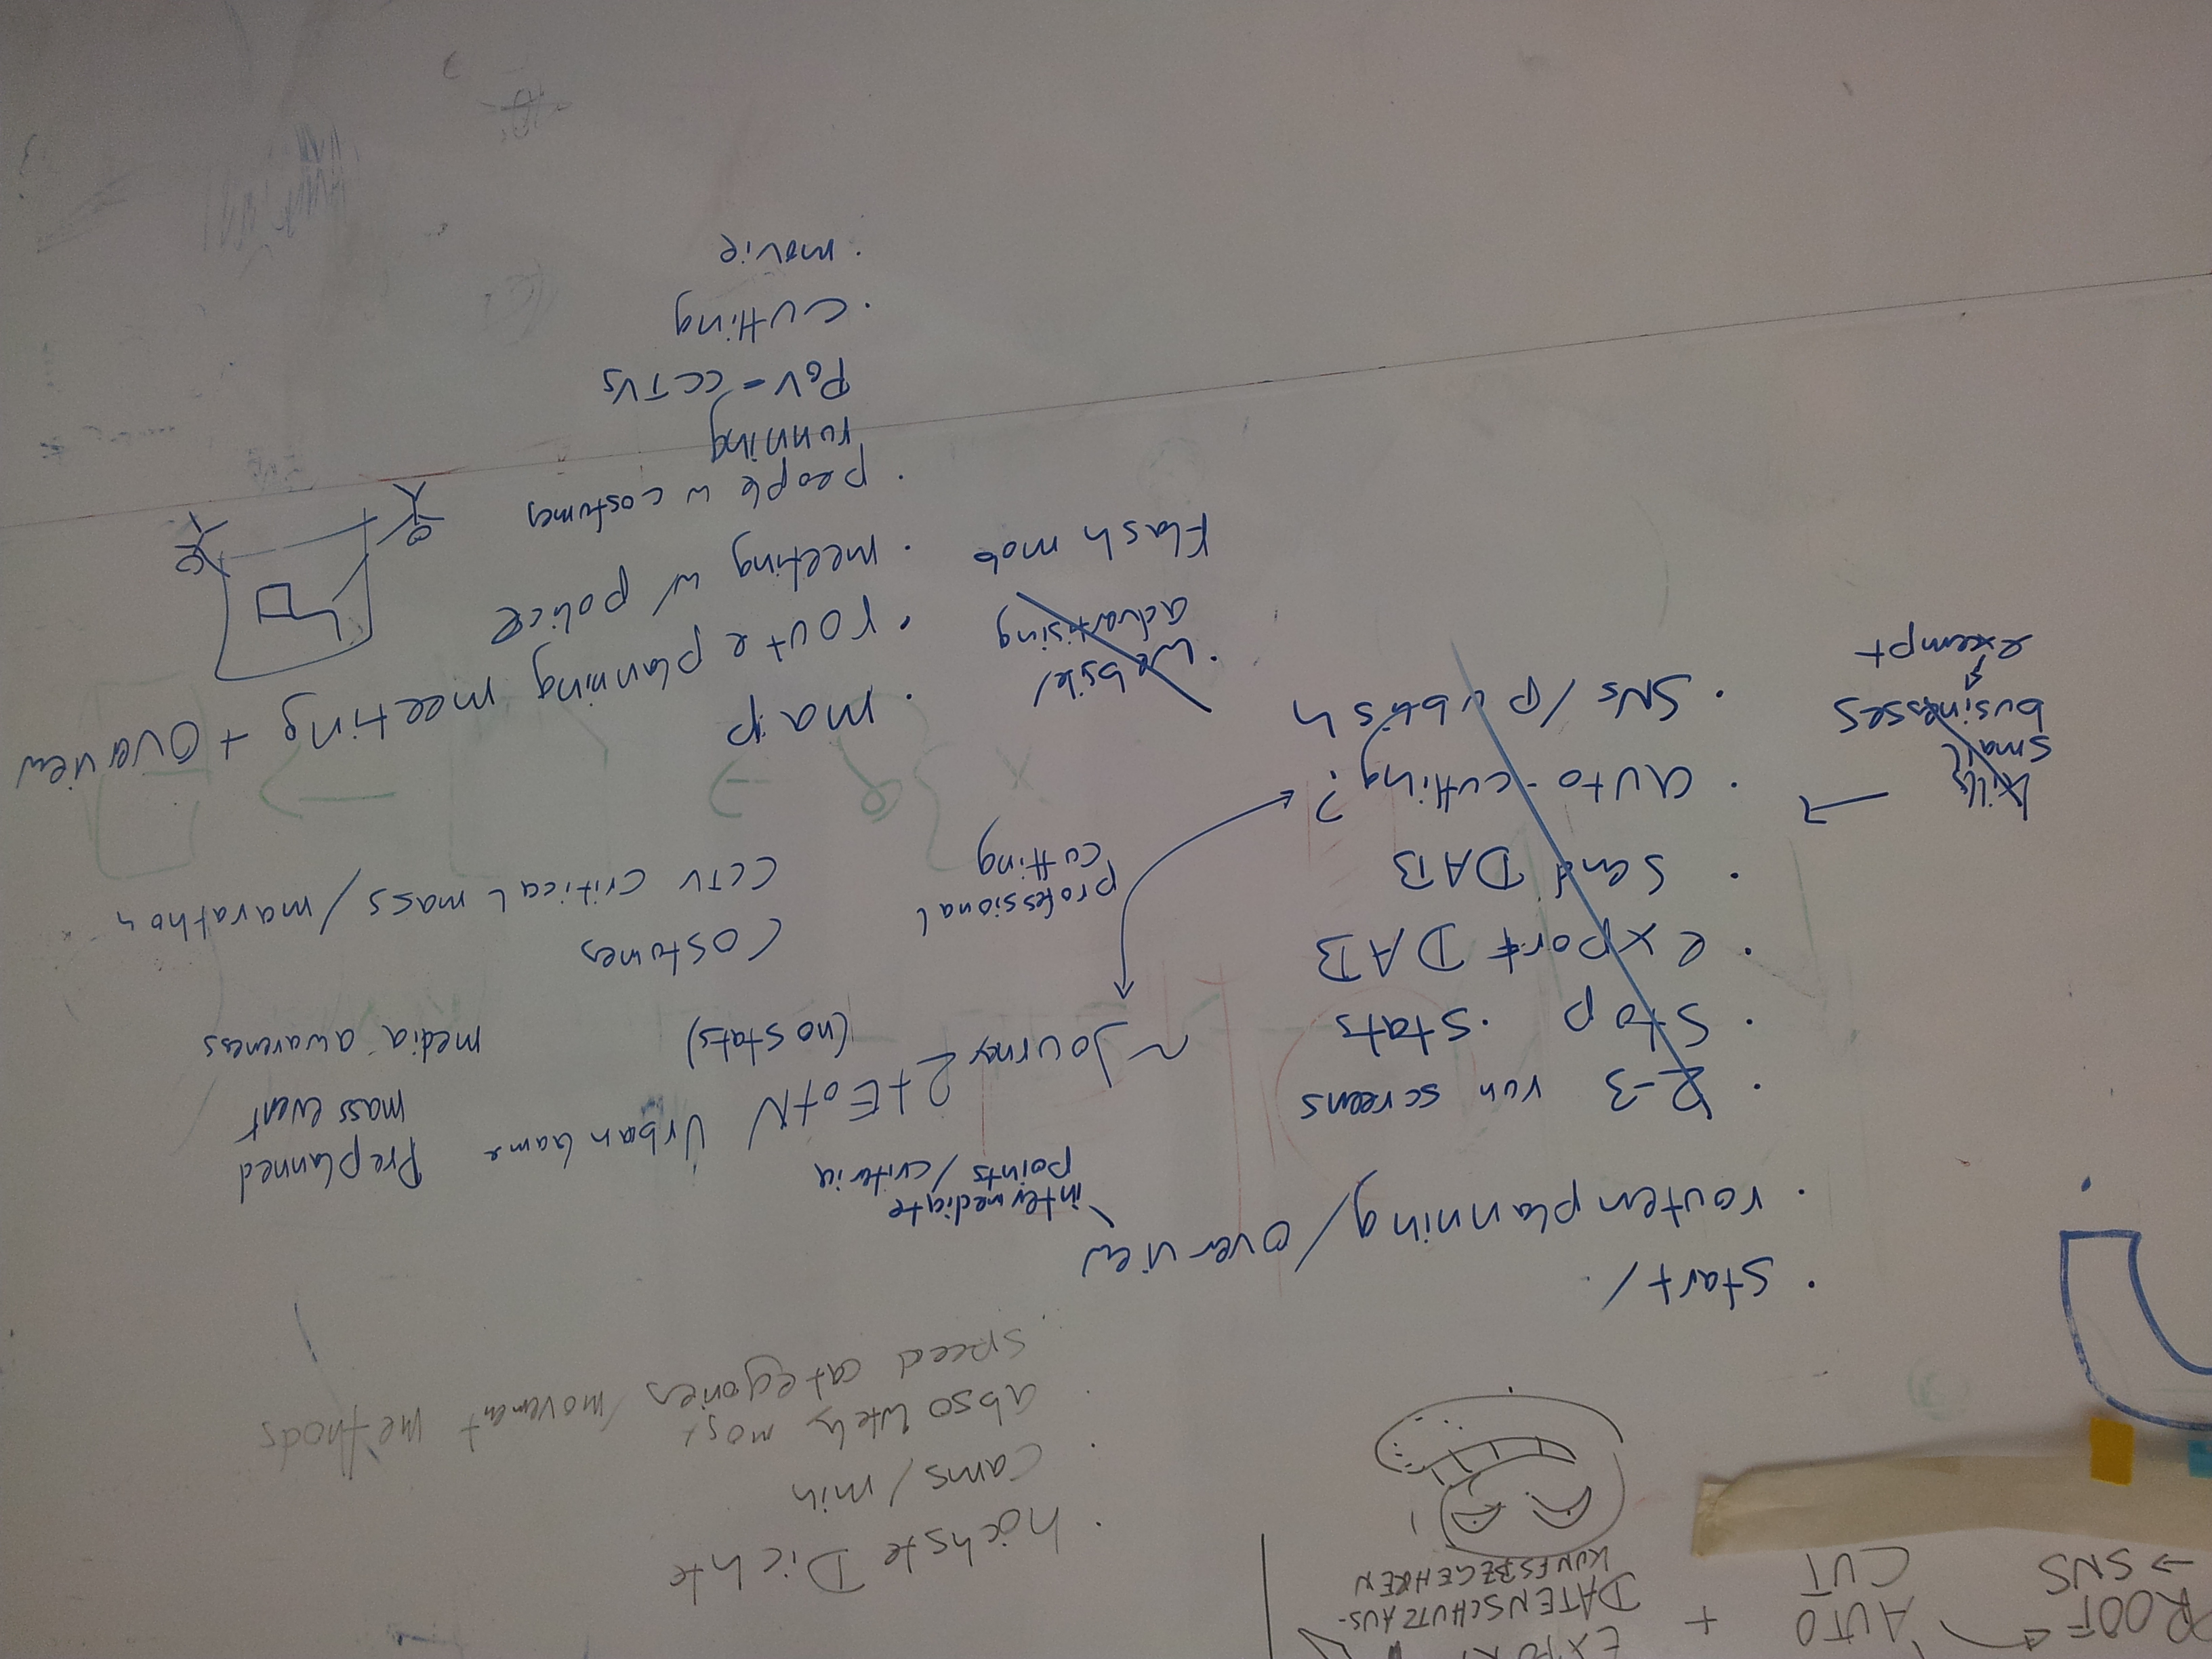 PROOF
→ SNS
AUTO
CUT
+
EXPORT
DATENSCHUTZAUS-
KUNFSBEGEHREN
· höchste Dichte
· cams/min
· absolutely most
· speed categories/movement methods
· start/
· routenplanning/overview
intermediate
points/criteria
· 2-3 run screens
· stop · stats
· export DAB
· send DAB
· auto-cutting?
· SNs/publish
kills
small
businesses
exempt
~ Journey 2 t E o t N
(no stats)
Urban Game
Preplanned
mass event
media awareness
professional
cutting
Costumes
CCTV critical mass/marathon
· website/
advertising
Flash mob
· map
· route planning meeting + overview
· meeting w/ police
· people w costumes
running
PoV - CCTVs
· cutting
· movie